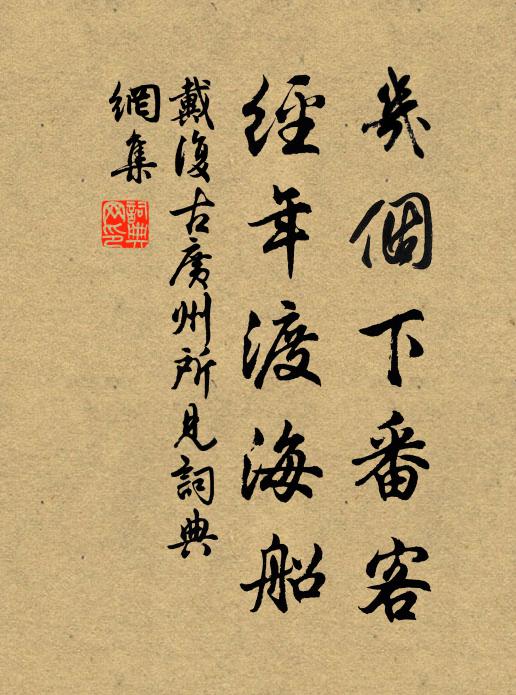 幾個下番客
經年渡海船
戴復古廣州所見詞典
網集
詞典網印